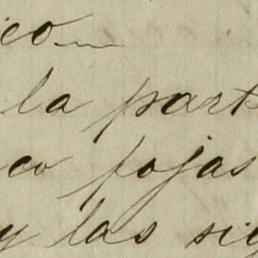 ico
la part
co fojas
y las sig